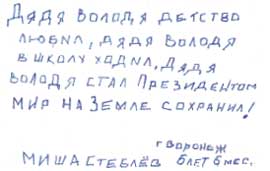 Дядя Володя детство
любил, дядя Володя
в школу ходил, дядя
Володя стал Президентом
мир на Земле сохранил!
г Воронеж
Миша Стеблёв 6 лет 6 мес.